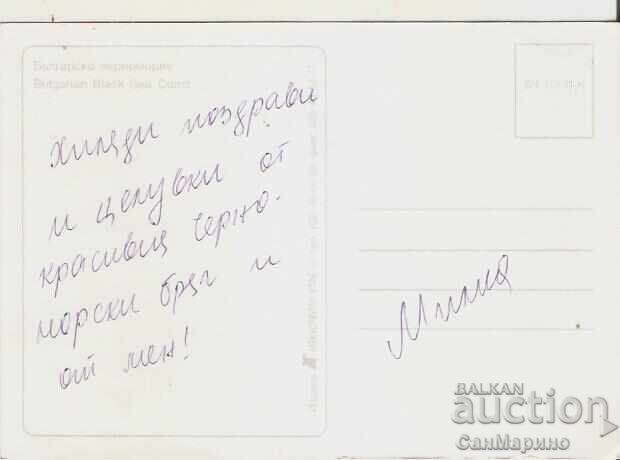 Българско черноморие
Bulgarian Black Sea Coast
Хиляди поздрави
и целувки от
красивия Черно-
морски бряг и
от мен!
Милка
BALKAN
auction
СанМарино